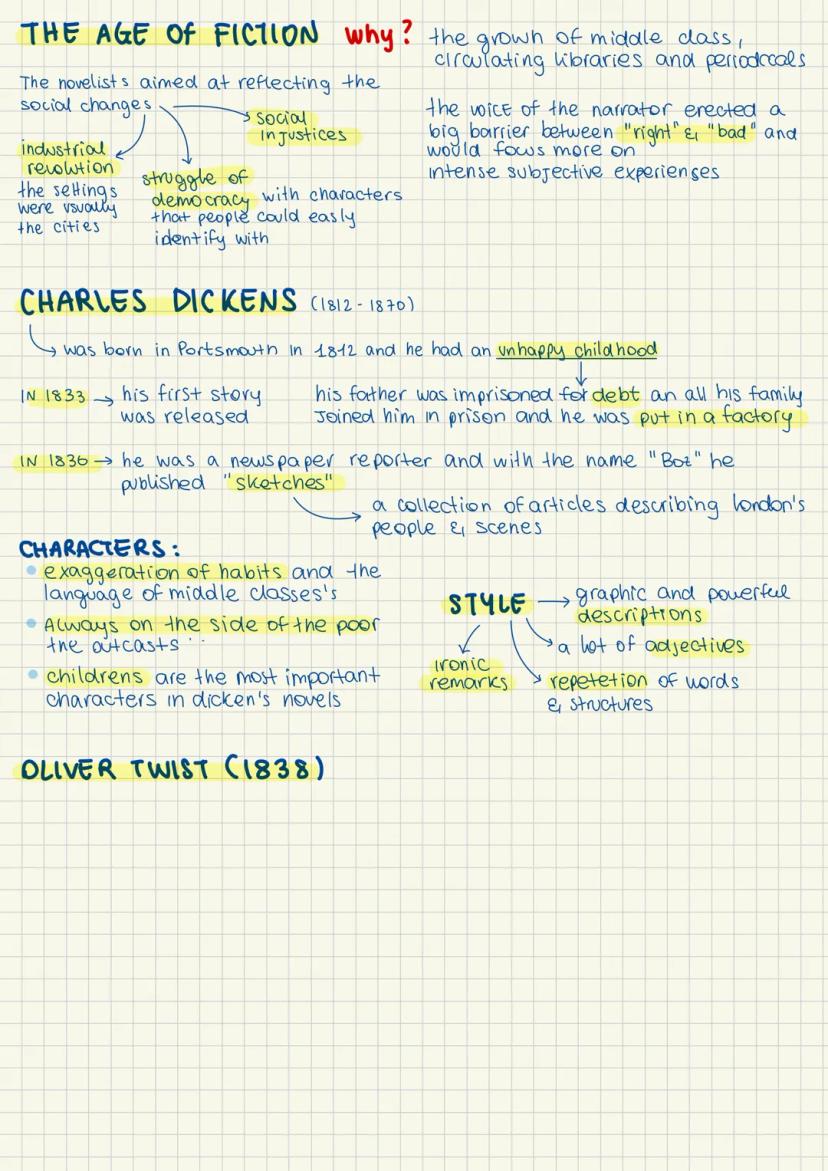 THE AGE OF FICTION why?
the grown of middle class,
circulating libraries and periodocals
The novelists aimed at reflecting the
social changes
social
injustices
industrial
revolution
the settings
were usually
the cities
struggle of
democracy with characters
that people could easly
identify with
the voice of the narrator erected a
big barrier between "right" & "bad" and
would focus more on
intense subjective experiences
CHARLES DICKENS (1812 - 1870)
was born in Portsmouth in 1812 and he had an unhappy childhood
his father was imprisoned for debt an all his family
joined him in prison and he was put in a factory
IN 1833 → his first story
was released
IN 1836 → he was a newspaper reporter and with the name "Boz" he
published "sketches"
a collection of articles describing london's
people & scenes
CHARACTERS:
• exaggeration of habits and the
language of middle classes's
• Always on the side of the poor
the outcasts
• childrens are the most important
characters in dicken's novels
STYLE → graphic and powerful
descriptions
a lot of adjectives
repetetion of words
& structures
ironic
remarks
OLIVER TWIST (1838)